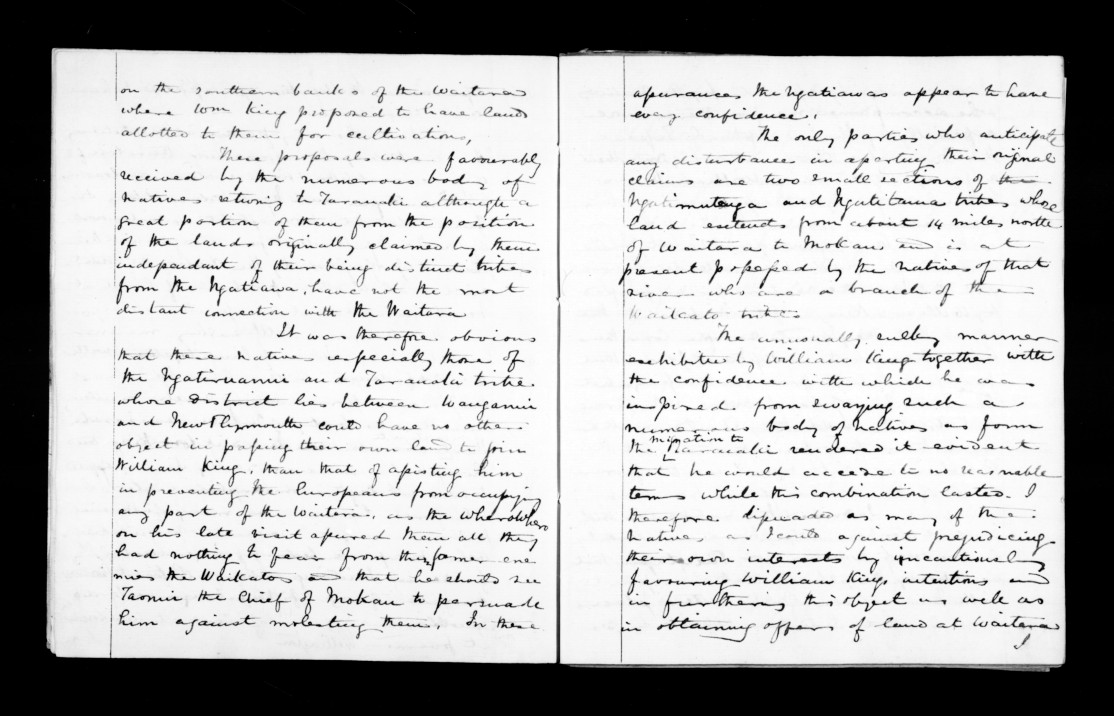 on the southern banks of the Waitara
where Wm King proposed to have land
allotted to them for cultivations,
These proposals were favourably
received by the numerous body of
natives returning to Taranaki although a
great portion of them from the position
of the lands originally claimed by them
independant of their being distinct tribes
from the Ngatiawa, have not the most
distant connection with the Waitara
It was therefore obvious
that these natives especially those of
the Ngatiruanui and Taranaki tribe
whose district lies between Wanganui
and New Plymouth could have no other
object in passing their own land to join
William King, than that of assisting him
in preventing the Europeans from occupying
any part of the Waitara, as the Wherowhero
on his late visit assured them all they
had nothing to fear from their former ene
mies the Waikatos and that he should see
Taonui the Chief of Mokau to persuade
him against molesting them. In these
assurances the Ngatiawas appear to have
every confidence.
The only parties who anticipate
any disturbance in asserting their original
claims are two small sections of the
Ngatimutunga and Ngatitama tribes whose
land extends from about 14 miles north
of Waitara to Mokau and is at
present possessed by the natives of that
river who are a branch of the
Waikato tribe.
The unusually sulky manner
exhibited by William King together with
the confidence with which he was
inspired from swaying such a
numerous body of natives as form
the migration to Taranaki rendered it evident
that he would accede to no reasonable
terms while this combination lasted. I
therefore dissuaded as many of the
natives as I could against prejudicing
their own interests by incautiously
favouring William Kings intentions and
in furthering this object as well as
in obtaining offers of land at Waitara
I